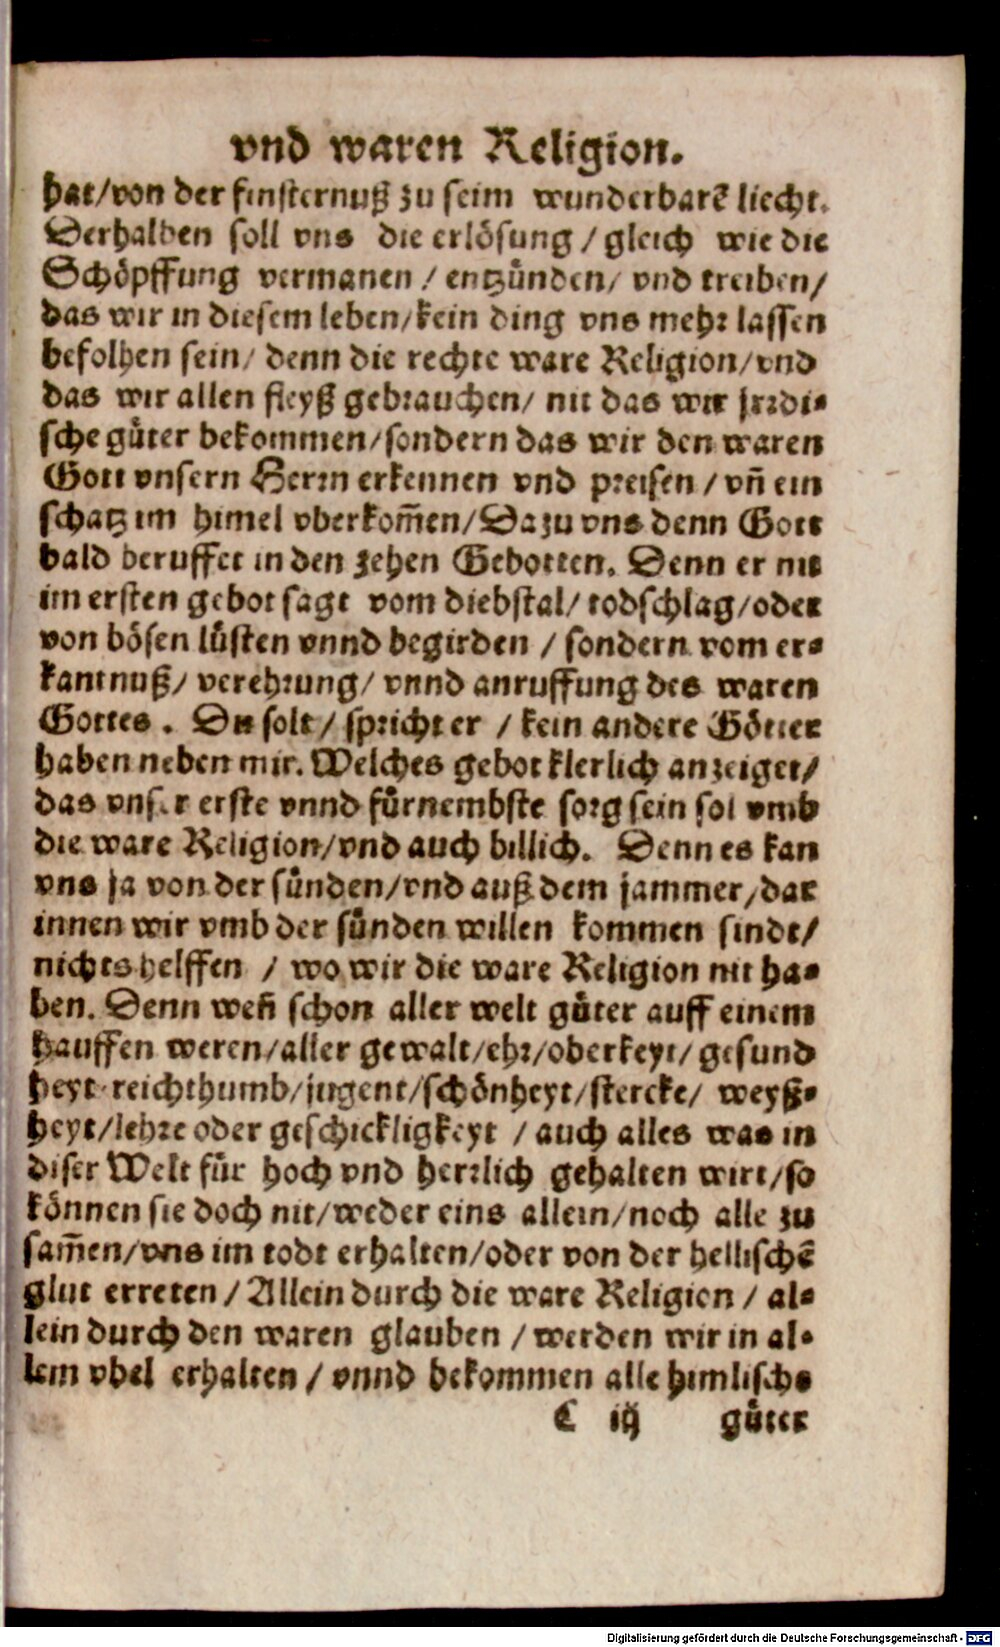 vnd waren Religion.
hat/von der finsternuß zu seim wunderbarẽ liecht.
Derhalben soll vns die erlösung / gleich wie die
Schöpffung vermanen / entzünden/ vnd treiben/
das wir in diesem leben/kein ding vns mehr lassen
befolhen sein/ denn die rechte ware Religion/vnd
das wir allen fleyß gebrauchen/ nit das wir jrrdi-
sche güter bekommen/sondern das wir den waren
Gott vnsern Herrn erkennen vnd preisen / vñ ein
schatz im himel vberkom̃en/Da zu vns denn Gott
bald beruffet in den zehen Gebotten. Denn er nit
im ersten gebot sagt vom diebstal/ todschlag/oder
von bösen lüsten vnnd begirden / sondern vom er-
kantnuß/ verehrung/ vnnd anruffung des waren
Gottes . Du solt / spricht er / kein andere Götter
haben neben mir. Welches gebot klerlich anzeiget/
das vnser erste vnnd fürnembste sorg sein sol vmb
die ware Religion/vnd auch billich. Denn es kan
vns ja von der sünden/vnd auß dem jammer/dar
innen wir vmb der sünden willen kommen sindt/
nichts helffen / wo wir die ware Religion nit ha-
ben. Denn weñ schon aller welt güter auff einem
hauffen weren/aller gewalt/ehr/oberkeyt/ gesund
heyt reichthumb/jugent/schönheyt/stercke/ weyß-
heyt/lehre oder geschickligkeyt / auch alles was in
diser Welt für hoch vnd herrlich gehalten wirt/so
können sie doch nit/weder eins allein/noch alle zu
sam̃en/vns im todt erhalten/oder von der hellischẽ
glut erreten / Allein durch die ware Religion / al-
lein durch den waren glauben / werden wir in al-
lem vbel erhalten / vnnd bekommen alle himlische
C iij güter
Digitalisierung gefördert durch die Deutsche Forschungsgemeinschaft - DFG